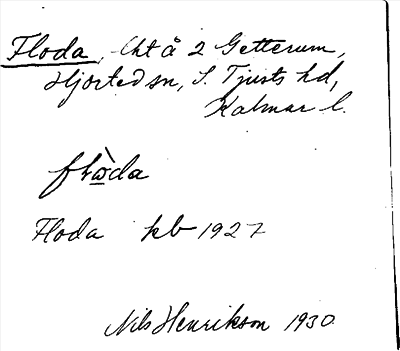 Floda, lht å 2 Getterum,
Hjorted sn, S. Tjusts hd,
Kalmar l.
flὼda
Floda kb 1927
Nils Henrikson 1930.